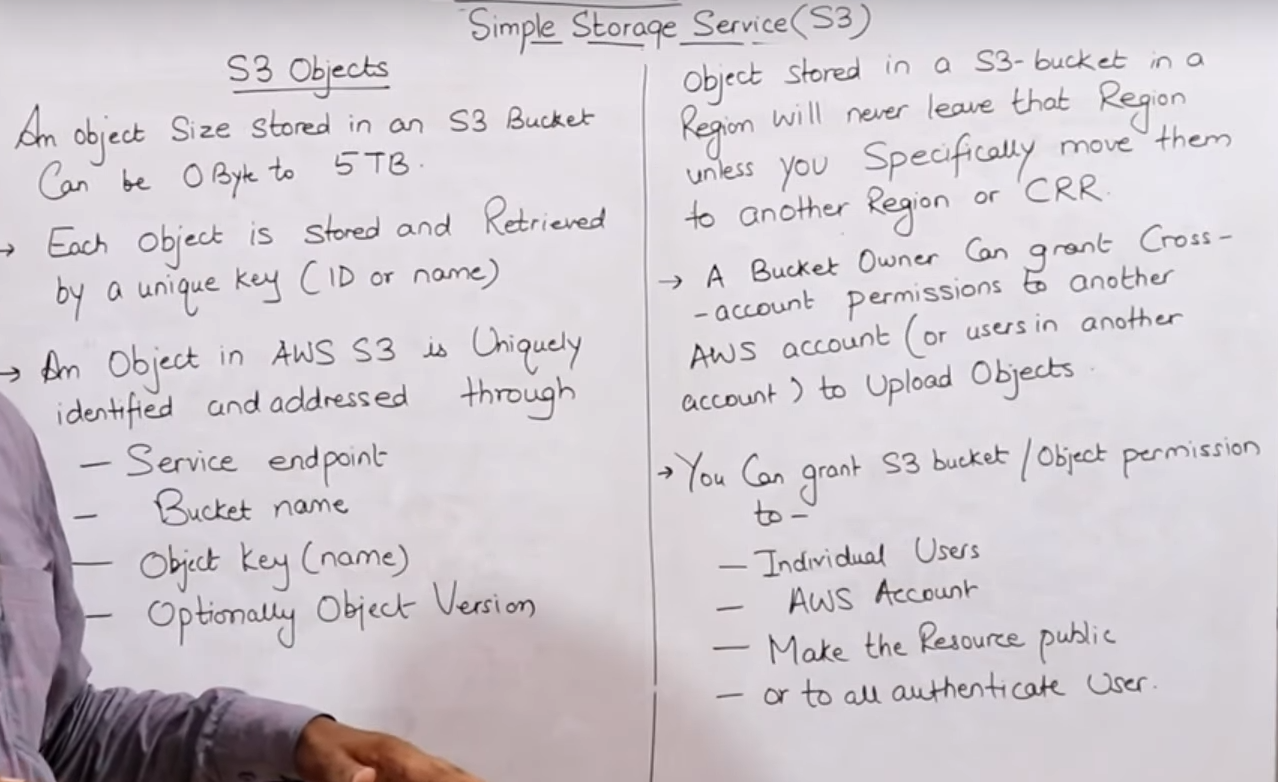 Simple Storage Service (S3)
S3 Objects
An object Size stored in an S3 Bucket
Can be 0 Byte to 5 TB.
→ Each Object is stored and Retrieved
by a unique key (ID or name)
→ An Object in AWS S3 is Uniquely
identified and addressed through
— Service endpoint
— Bucket name
— Object key (name)
— Optionally Object Version
Object stored in a S3-bucket in a
Region will never leave that Region
unless you Specifically move them
to another Region or CRR.
→ A Bucket Owner Can grant Cross-
-account permissions to another
AWS account (or users in another
account) to Upload Objects.
→ You Can grant S3 bucket/Object permission
to –
— Individual Users
— AWS Account
— Make the Resource public
— or to all authenticate User.